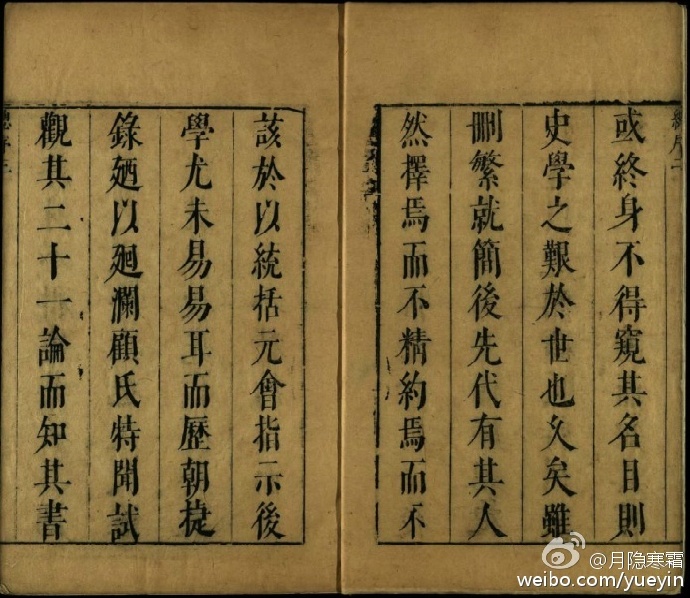 總序二
或終身不得窺其名目則
史學之艱於世也久矣雖
刪繁就簡後先代有其人
然擇焉而不精約焉而不
該於以統括元會指示後
學尤未易易耳而歷朝捷
錄廼以廻瀾顧氏特聞試
觀其二十一論而知其書
總序三
@月隐寒霜
weibo.com/yueyin